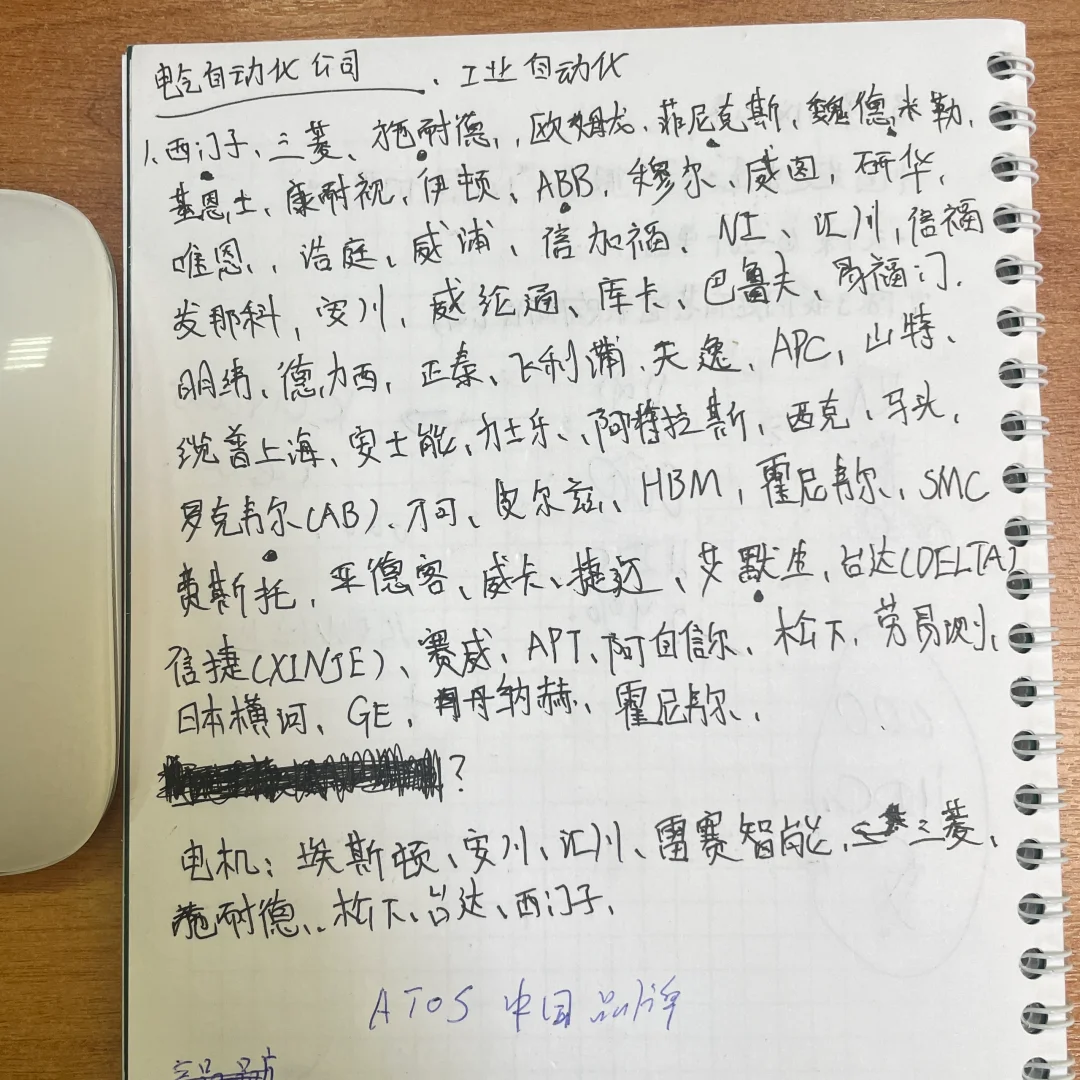 电气自动化公司、工业自动化
1、西门子、三菱、施耐德、欧姆龙、菲尼克斯、魏德米勒、
基恩士、康耐视、伊顿、ABB、穆尔、威图、研华、
唯恩、浩庭、威浦、倍加福、NI、汇川、倍福
发那科、安川、威纶通、库卡、巴鲁夫、易福门、
明纬、德力西、正泰、飞利浦、天逸、APC、山特、
缆普上海、安士能、力士乐、阿特拉斯、西克、马头、
罗克韦尔(AB)、不可、皮尔兹、HBM、霍尼韦尔、SMC
费斯托、亚德客、威卡、捷迈、艾默生、台达(DELTA)
信捷(XINJE)、赛威、APT、阿自倍尔、松下、劳易测、
日本横河、GE、丹纳赫、霍尼韦尔、
?
电机：埃斯顿、安川、汇川、雷赛智能、三菱、
施耐德、松下、台达、西门子、
ATOS 中国品牌